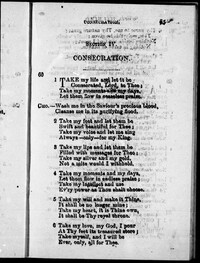 CONSECRATION.
65
SECTION IV.
CONSECRATION.
60
1 TAKE my life and let it be
Consecrated, Lord, to Thee;
Take my moments and my days,
Let them flow in ceaseless praise.
CHO.—Wash me in the Saviour's precious blood,
Cleanse me in its purifying flood.
2 Take my feet and let them be
Swift and beautiful for Thee;
Take my voice and let me sing
Always—only—for my King.
3 Take my lips and let them be
Filled with messages for Thee;
Take my silver and my gold,
Not a mite would I withhold.
4 Take my moments and my days,
Let them flow in endless praise;
Take my intellect and use
Ev'ry power as Thou shalt choose.
5 Take my will and make it Thine,
It shall be no longer mine;
Take my heart, it is Thine own,
It shall be Thy royal throne.
6 Take my love, my God, I pour
At Thy feet its treasured store;
Take myself, and I will be
Ever, only, all for Thee.